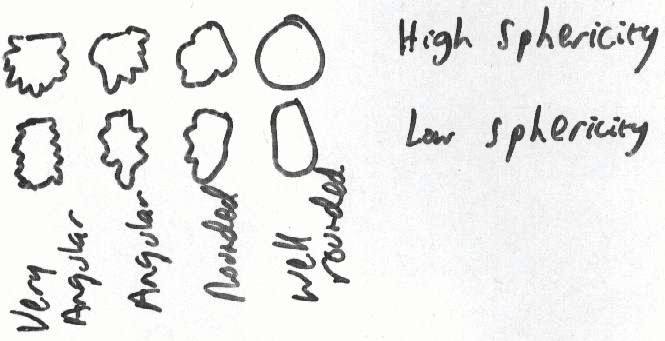 High Sphericity
Low Sphericity
Very
Angular
Angular
Rounded
Well
rounded